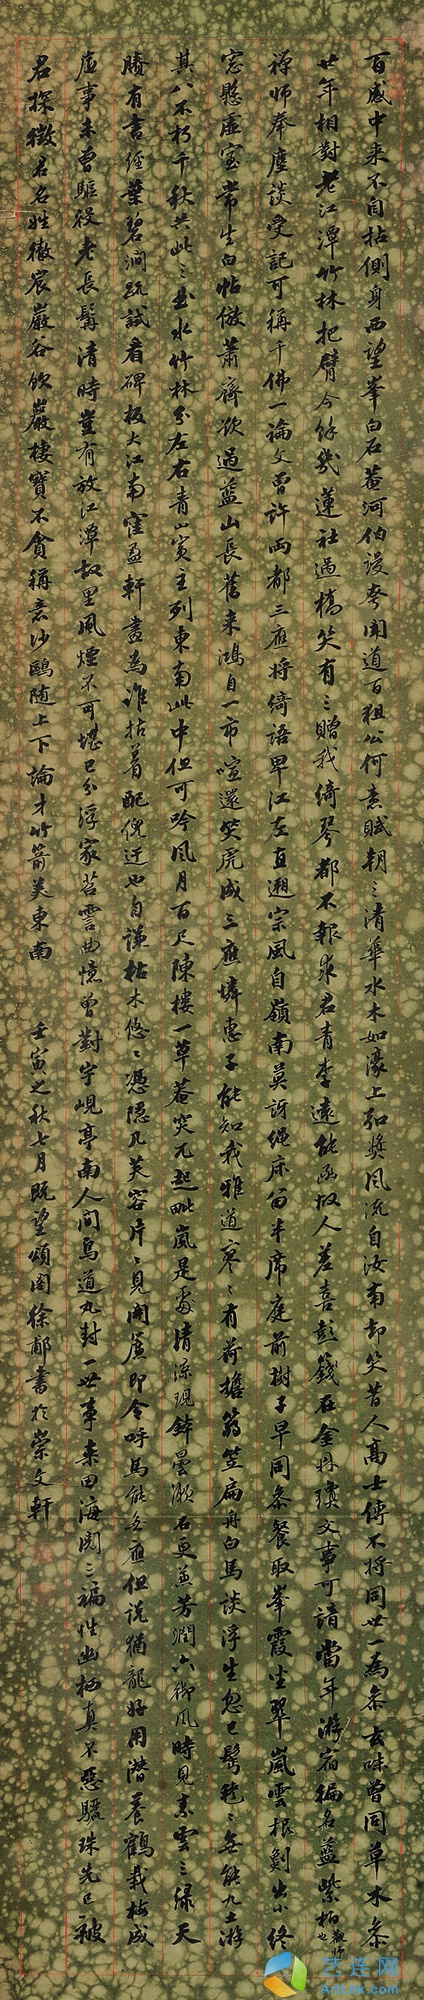 百感中来不自拈側身西望峯白石菴河伯謾夸聞道百狙公何意賦朝三清華水木如濠上弘奬風流自汝南却笑昔人高士傳不將同世一為叅玄味曾同草木叅
廿年相對老江潭竹林把臂今餘幾蓮社過橋笑有三贈我綺琴都不報求君青李遠能函故人差喜彭籛在金丹瓊文事可諳當年游宿徧名藍紫柏觀師也
禪師奉麈談受記可稱千佛一論文曽許兩都三應將綺語畀江左直遡宗風自嶺南莫訝繩床留半席庭前樹子早同叅餐取峯霞坐翠嵐雲根劚出小終
窓懸虛室常生白帖倣蕭齋欲過藍山長舊来鴻自一市喧還笑虎成三應憐惠子能知我雅道寥寥有荷擔篛笠扁舟白馬談浮生忽已鬢毿毿無能九土游
其八不朽千秋共此三曲水竹林分左右青山賓主列東南此中但可吟風月百尺陳樓一草菴突兀起毗嵐是處清流現鉢曇漱石更兼芳潤六御風時見素雲三綠天
賸有書經葉碧澗疏試看碑板大江南窪盈軒畫為誰拈着配倪迂也自諳枯木悠悠憑隠几芙容片片見開簾即令呼馬能無應但說猶龍好用潜養鶴栽梅成
底事未曽驅役老長髯清時豈有放江潭故里風煙不可堪已分浮家苕霅曲憶曽對宇峴亭南人間鳥道丸封一世事桑田海閲三褊性幽栖真不惡驪珠先已被
君探徴君名姓徹宸嚴谷飲巖棲寳不貪稱意沙鷗随上下論才竹箭美東南 壬寅之秋七月既望頌閣徐郙書於崇文軒
艺连网